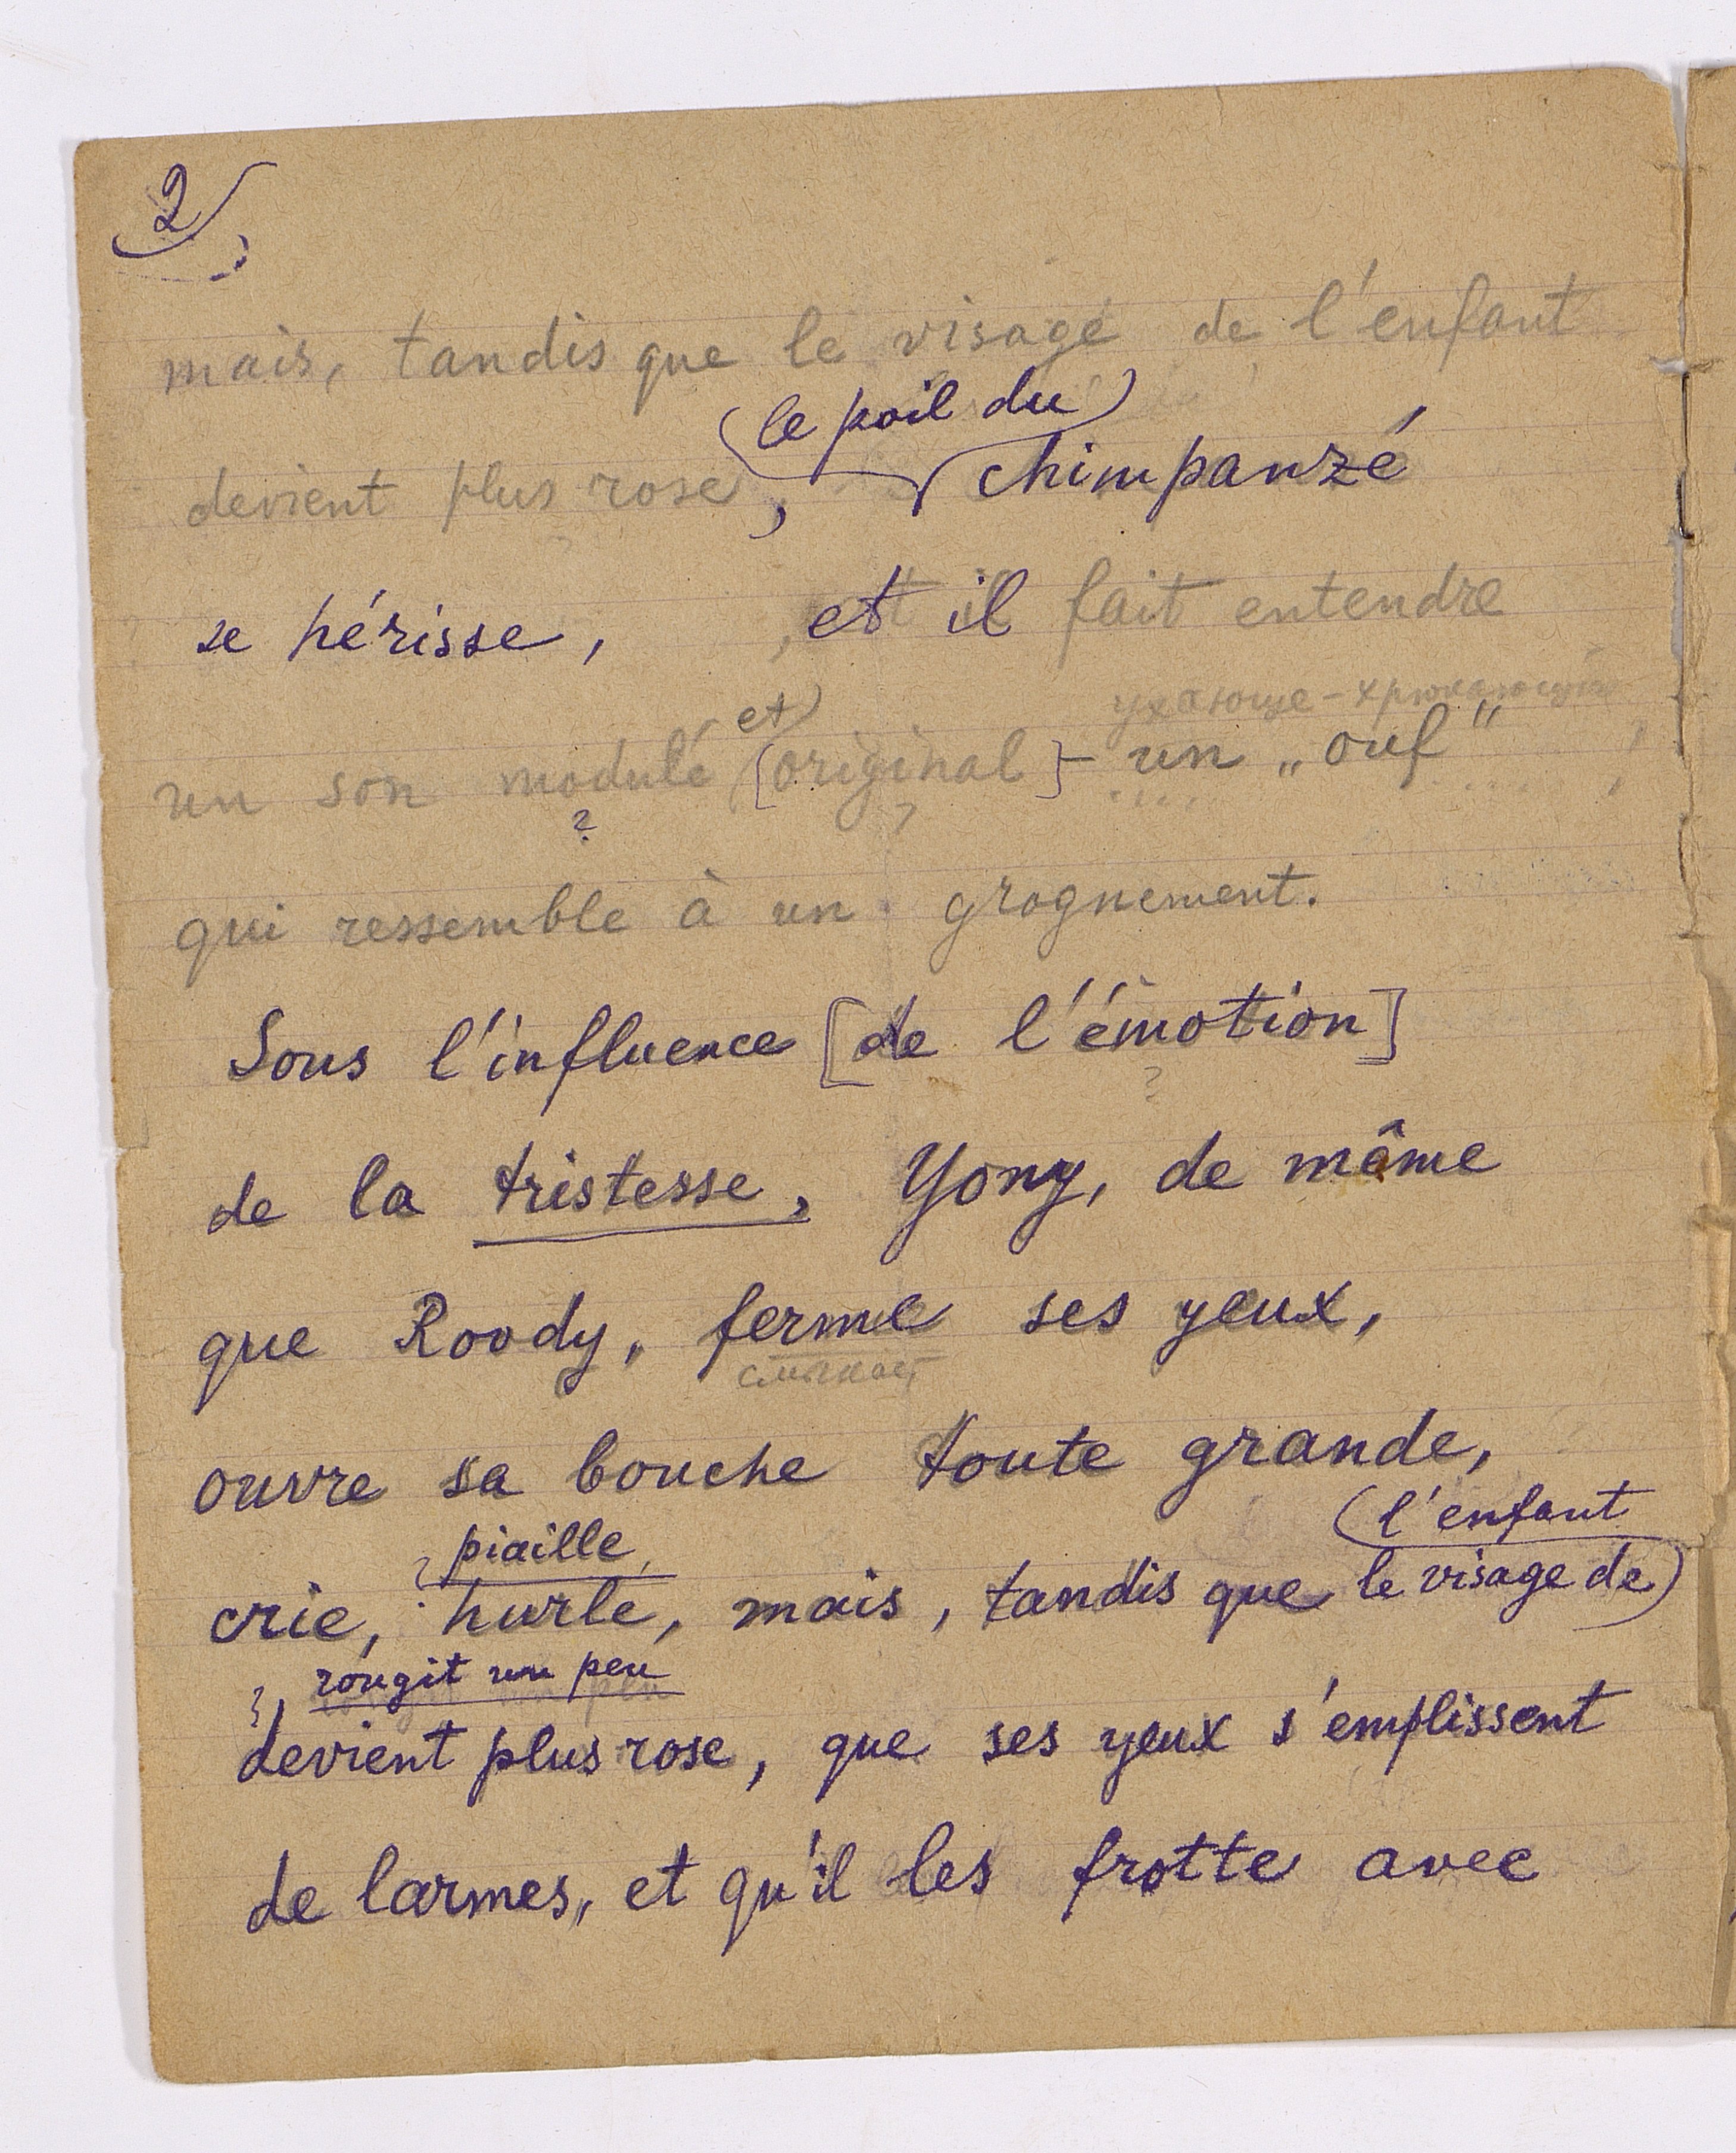 2
mais, tandis que le visage de l'enfant
(le poil du)
devient plus rose, chimpanzé
se hérisse, , et il fait entendre
ухающе - хрюкающий
et)
un son modulé [original] - un „ouf"
? ?
qui ressemble à un grognement.
Sous l'influence [de l'émotion]
?
de la tristesse, Yony, de même
que Roody, ferme ses yeux,
смыкает
ouvre sa bouche toute grande,
(l'enfant
? piaille,
crie, hurle, mais, tandis que le visage de)
? rougit un peu
devient plus rose, que ses yeux s'emplissent
de larmes, et qu'il les frotte avec